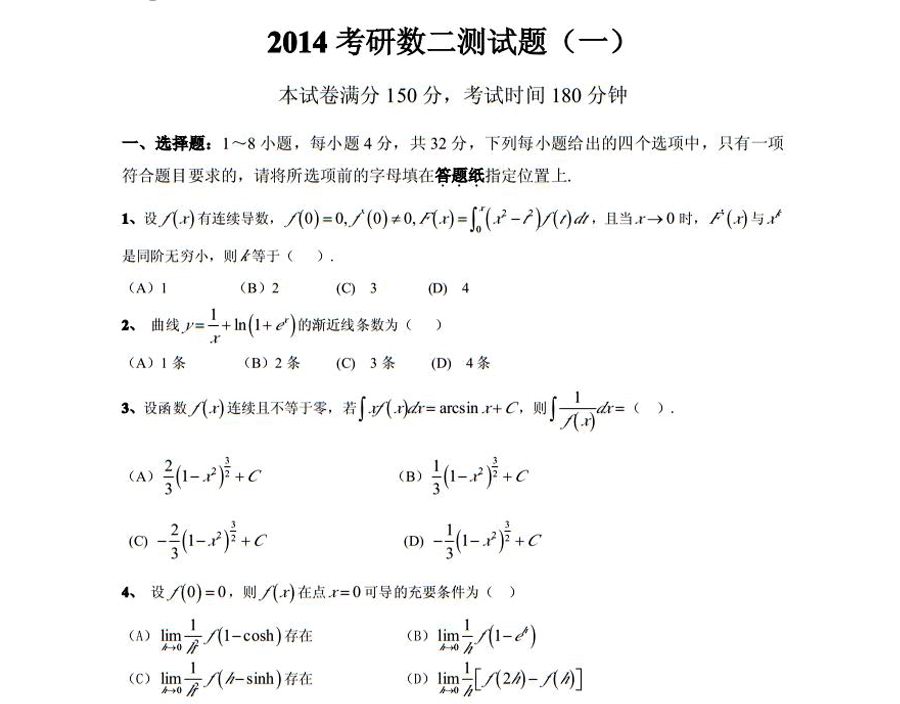 2014 考研数二测试题（一）
本试卷满分 150 分，考试时间 180 分钟
一、选择题：1～8 小题，每小题 4 分，共 32 分，下列每小题给出的四个选项中，只有一项
符合题目要求的，请将所选项前的字母填在答题纸指定位置上.
1、设 f(x) 有连续导数，f(0)=0, f'(0)≠0, F(x)=∫₀ˣ(x²−t²)f(t)dt，且当 x→0 时，F'(x) 与 xᵏ
是同阶无穷小，则 k 等于（ ）.
（A）1 （B）2 (C) 3 (D) 4
2、 曲线 y=1/x+ln(1+eˣ) 的渐近线条数为（ ）
（A）1 条 （B）2 条 (C) 3 条 (D) 4 条
3、设函数 f(x) 连续且不等于零，若 ∫xf(x)dx=arcsin x+C，则 ∫1/f(x) dx=（ ）.
（A）2/3(1−x²)^(3/2)+C （B）1/3(1−x²)^(3/2)+C
(C) −2/3(1−x²)^(3/2)+C (D) −1/3(1−x²)^(3/2)+C
4、 设 f(0)=0，则 f(x) 在点 x=0 可导的充要条件为（ ）
（A）lim h→0 1/h² f(1−cosh) 存在 （B）lim h→0 1/h f(1−eʰ)
（C）lim h→0 1/h² f(h−sinh) 存在 （D）lim h→0 1/h [f(2h)−f(h)]